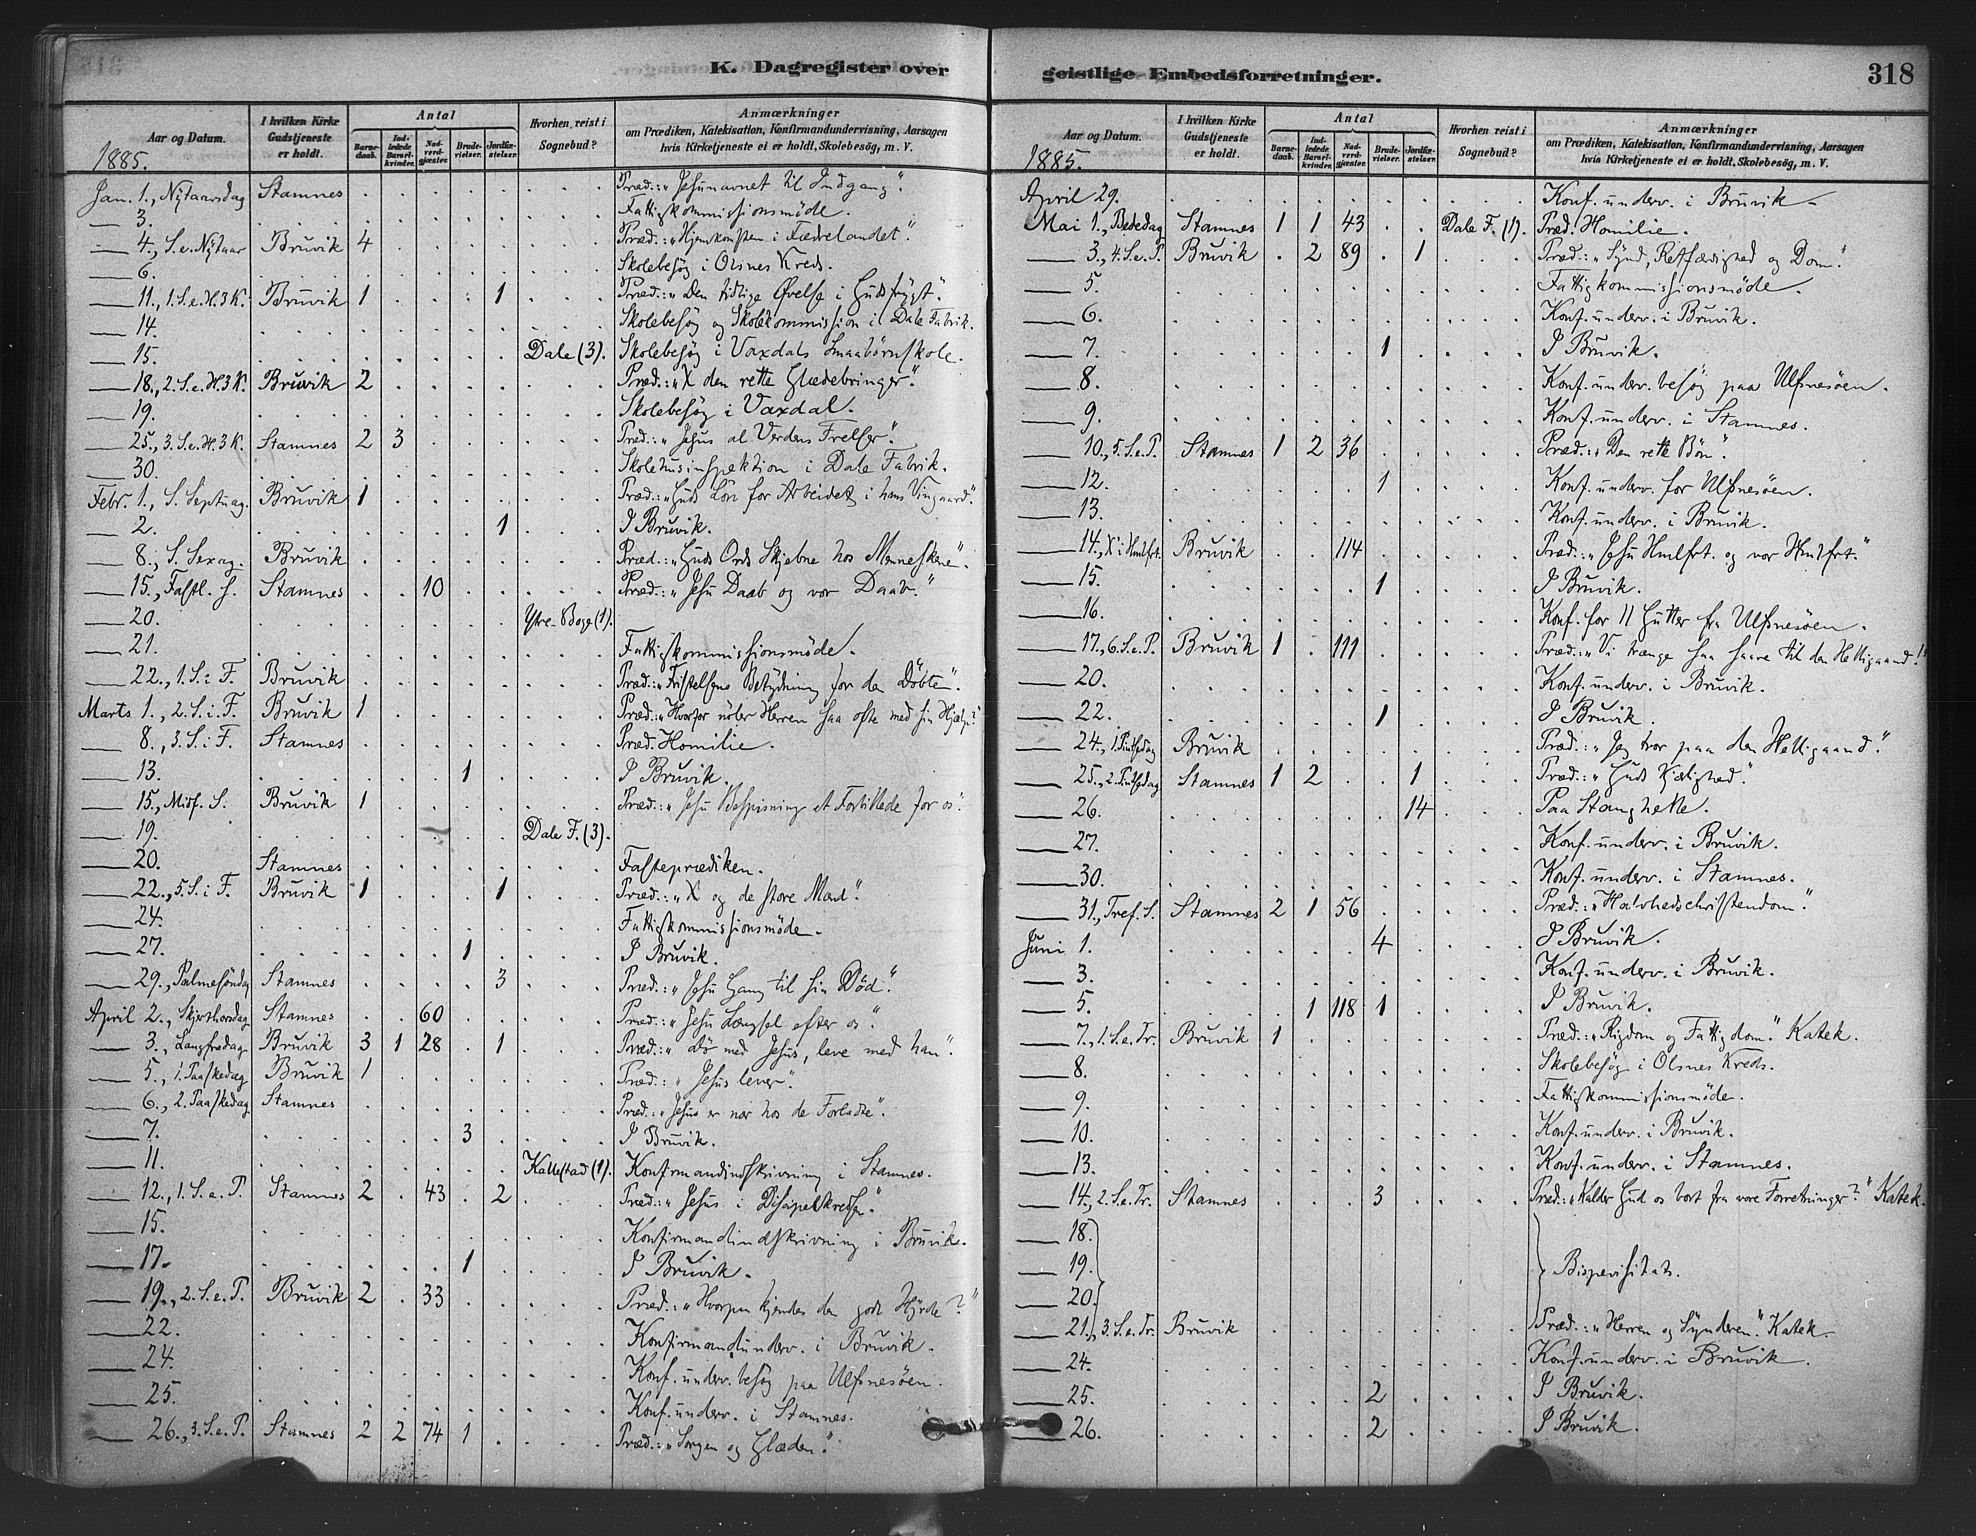 K. Dagregister over
Aar og Datum. I hvilken Kirke Gudstjeneste er holdt. Antal Barnedaab. Indledede Barselkvinder. Nadverdgjæster. Brudevielser. Jordfæstelser. Hvorhen reist i Sognebud? Anmærkninger om Prædiken, Katekisation, Konfirmandundervisning, Aarsagen hvis Kirketjeneste ei er holdt, Skolebesøg, m. V.
1885.
Jan. 1., Nytaarsdag Stamnes Præd.: „Jesunavnet til Indgang."
3. Fattigkommissionsmøde.
4., S. e. Nytaar Bruvik 4 Præd.: „Hjemkomsten i Fædrelandet"
6. Skolebesøg i Olsnes Kreds.
11., 1. S. e. H. 3 K. Bruvik 1 1 Præd.: „Den tidlige Øvelse i Gudsfrygt."
14. Skolebesøg og Skolekommission i Dale Fabrik.
15. Dale (3). Skolebesøg i Vaxdals Smaabørnskole.
18., 2. S. e. H. 3 K. Bruvik 2 Præd.: „X den rette Glædebringer."
19. Skolebesøg i Vaxdal.
25., 3. S. e. H. 3 K. Stamnes 2 3 Præd.: „Jesus al Verdens Frelser."
30. Skolehusinspektion i Dale Fabrik.
Febr. 1., S. Septuag. Bruvik 1 Præd.: „Guds Løn for Arbeidet i hans Vingaard."
2. 1 I Bruvik.
8., S. Sexag. Bruvik Præd.: „Guds Ords Skjebne hos Menneskene".
15., Fastl. S. Stamnes 10 Præd.: „Jesu Daab og vor Daab."
20. Ytre-Boge (1).
21. Fattigkommissionsmøde.
22., 1. S. i F. Bruvik Præd.: „Fristelsens Betydning for den Døbte".
Marts 1., 2. S. i. F. Bruvik 1 Præd.: „Hvorfor nøler Herren saa ofte med sin Hjælp?"
8., 3. S. i F. Stamnes Præd. Homilie.
13. 1 I Bruvik.
15., Midf. S. Bruvik 1 Præd.: „Jesu Bespisning et Forbillede for os".
19. Dale F. (3).
20. Stamnes Fasteprædiken.
22., 5. S. i F. Bruvik 1 1 Præd.: „X og de store Mænd".
24. Fattigkommissionsmøde.
27. 1 I Bruvik.
29., Palmesøndag Stamnes 3 Præd.: „Jesu Gang til sin Død."
April 2., Skjærthorsdag Stamnes 60 Præd.: „Jesu Længsel efter os".
3., Langfredag Bruvik 3 1 28 1 Præd.: „dø med Jesus, leve med ham".
5., 1. Paaskedag Bruvik 1 Præd.: „Jesus lever".
6., 2. Paaskedag Stamnes Præd.: „Jesus er nær hos de Forladte".
7. 3 I Bruvik.
11. Kallestad (1). Konfirmandindskrivning i Stamnes.
12., 1. S. e. P. Stamnes 2 43 2 Præd.: „Jesus i Disipelkredsen"
15. Konfirmandindskrivning i Bruvik.
17. 1 I Bruvik.
19., 2. S. e. P. Bruvik 2 33 Præd.: „Hvorpaa kjendes den gode Hyrde?"
22. Konfirmandunderv. i Bruvik.
24. Konf. underv. besøg paa Ulfsnesøen.
25. Konf. underv. i Stamnes.
26., 3. S. e. P. Stamnes 2 2 74 1 Præd.: „Sorgen og Glæden."
geistlige Embedsforretninger. 318
Aar og Datum. I hvilken Kirke Gudstjeneste er holdt. Antal Barnedaab. Indledede Barselkvinder. Nadverdgjæster. Brudevielser. Jordfæstelser. Hvorhen reist i Sognebud? Anmærkninger om Prædiken, Katekisation, Konfirmandundervisning, Aarsagen hvis Kirketjeneste ei er holdt, Skolebesøg, m. V.
1885.
April 29. Konf. underv. i Bruvik
Mai 1., Bededag Stamnes 1 1 43 Dale F. (1). Præd. Homilie.
3., 4. S. e. P. Bruvik 2 89 1 Præd.: „Synd, Retfærdighed og Dom".
5. Fattigkommissionsmøde.
6. Konf. underv. i Bruvik.
7. 1 I Bruvik.
8. Konf. underv. besøg paa Ulfsnesøen.
9. Konf. underv. i Stamnes.
10., 5. S. e. P. Stamnes 1 2 36 Præd.: „Den rette Bøn".
12. 1 Konf. underv. for Ulfsnesøen.
13. Konf. underv. i Bruvik.
14., X' i Hmlfrt. Bruvik 114 Præd.: „Jesu Hmlfrt. og vor Hmlfrt."
15. 1 I Bruvik.
16. Konf. for 11 Gutter fra Ulfsnesøen.
17., 6. S. e. P. Bruvik 1 111 Præd.: „Vi trænge saa saare til den Helligaand!"
20. Konf. underv. i Bruvik.
22. 1 I Bruvik.
24., 1. Pintsedag Bruvik Præd.: „Jeg tror paa den Helligaand."
25., 2. Pintsedag Stamnes 1 2 1 Præd.: „Guds Kjærlighed."
26. 14 Paa Stanghelle.
27. Konf. underv. i Bruvik.
30. Konf. underv. i Stamnes.
31., Tref. S. Stamnes 2 1 56 Præd.: „Halvhedschristendom."
Juni 1. 4 I Bruvik.
3. Konf. underv. i Bruvik.
5. 1 118 1 I Bruvik.
7., 1. S. e. Tr. Bruvik 1 Præd.: „Rigdom og Fattigdom." Katek.
8. Skolebesøg i Olsnes Kreds.
9. Fattigkommissionsmøde.
10. Konf. underv. i Bruvik.
13. Konf. underv. i Stamnes.
14., 2. S. e. Tr. Stamnes 3 Præd.: „Kalder Gud os bort fra vore Forretninger?" Katek.
18.
19. Bispevisitats.
20.
21., 3. S. e. Tr. Bruvik Præd.: „Herren og Synderen." Katek.
24. Konf. underv. i Bruvik.
25. 2 I Bruvik.
26. 2 I Bruvik.